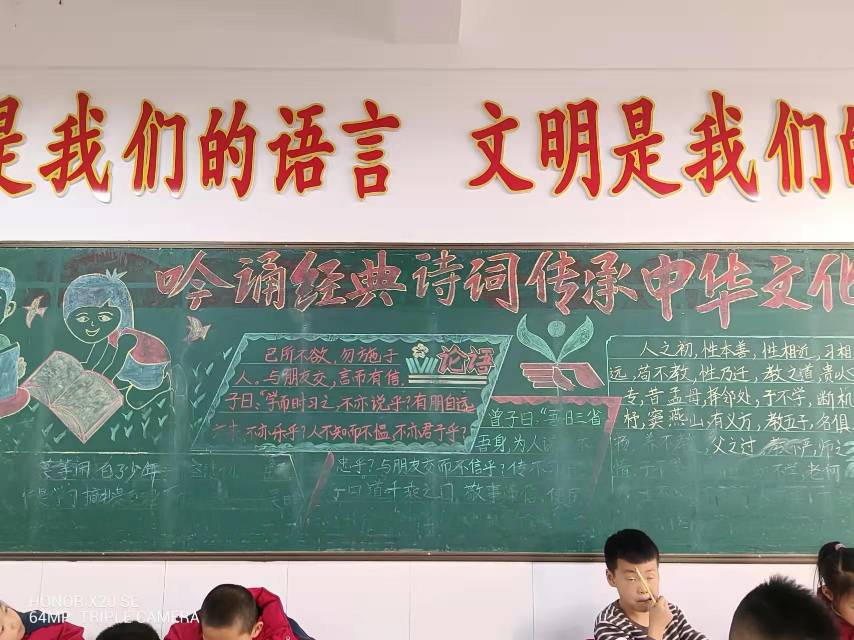 是我们的语言 文明是我们的
吟诵经典诗词传承中华文化
己所不欲,勿施于
人。与朋友交,言而有信,
子曰:“学而时习之,不亦说乎?有朋自远
不亦乐乎?人不知而不愠,不亦君子乎?
论语
曾子曰:“吾日三省
吾身,为人
忠乎?与朋友交而不信乎?传不习
道千乘之国,敬事
人之初,性本善,性相近,习相
远,苟不教,性乃迁,教之道,贵以
专,昔孟母,择邻处,子不学,断机
杼,窦燕山,有义方,教五子,名俱
父之过 教 严,师之
老何
白了少年
HONOR X20 SE
64MP TRIPLE CAMERA